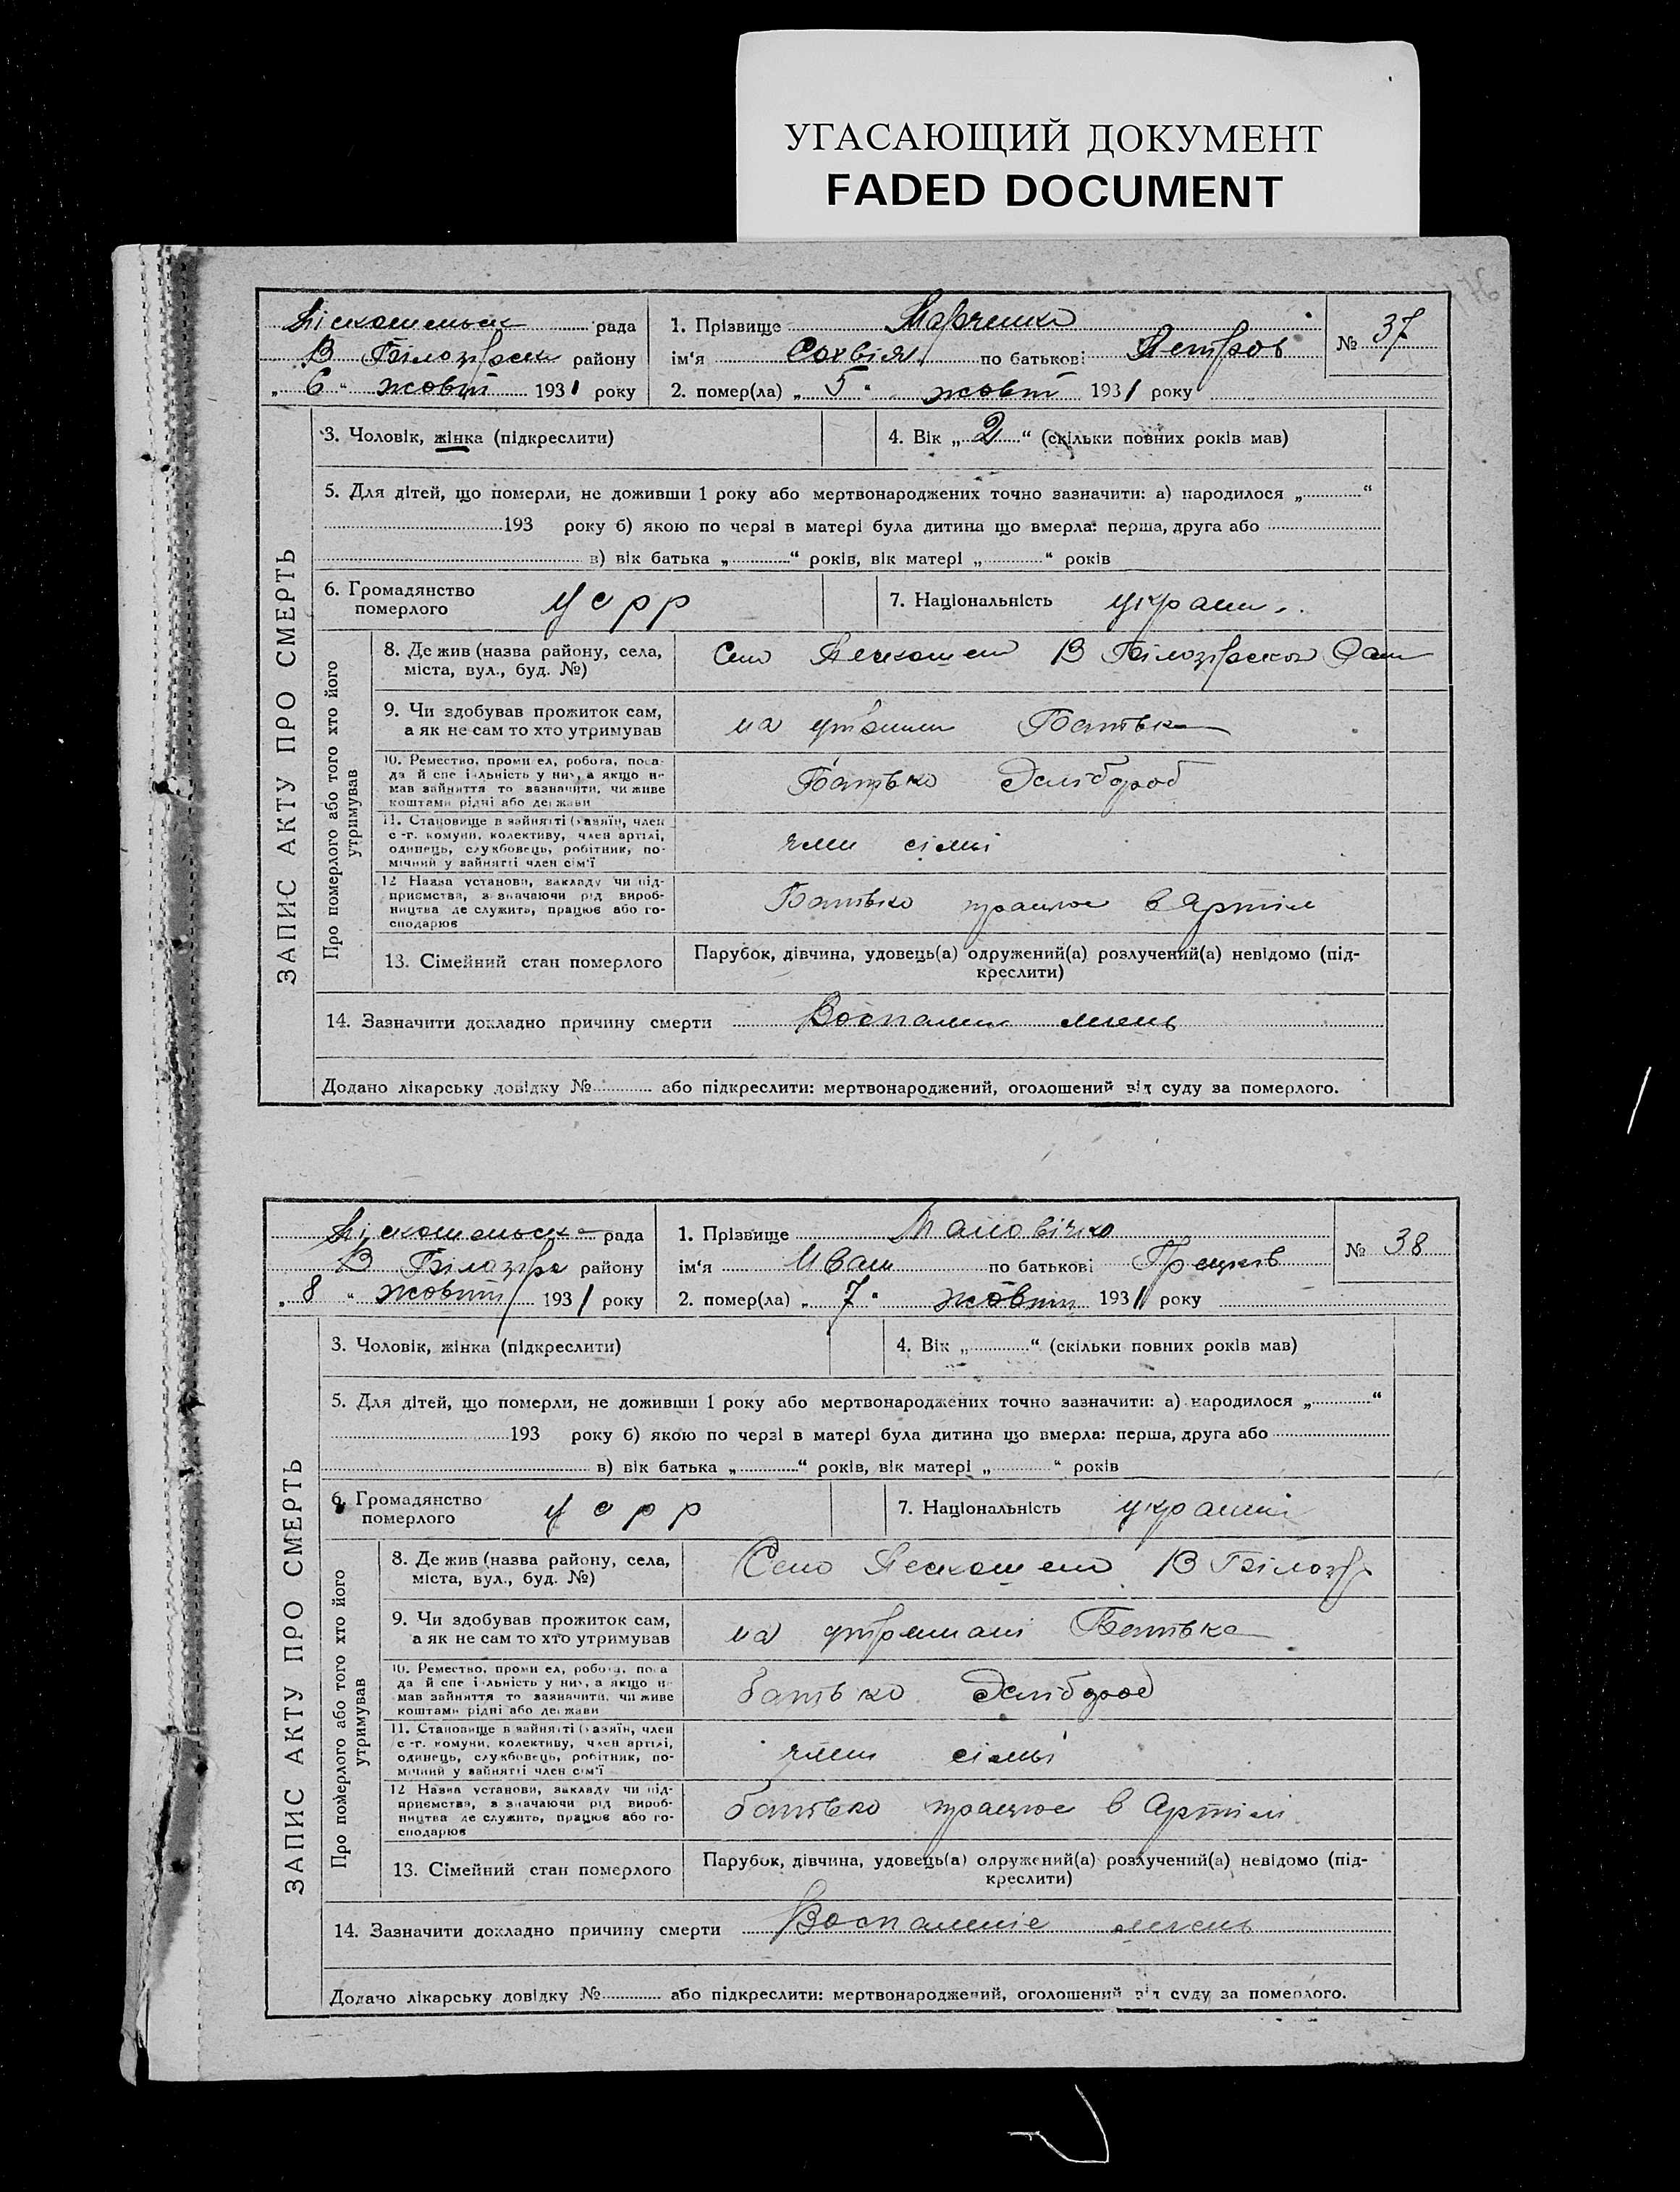 УГАСАЮЩИЙ ДОКУМЕНТ
FADED DOCUMENT
рада
В Білозірськ району
„ 6 “ жовт 1931 року
1. Прізвище Марченко
ім'я Сохвія по батькові Петров
2. помер(ла) „ 5 “ жовт 1931 року
№ 37
ЗАПИС АКТУ ПРО СМЕРТЬ
3. Чоловік, жінка (підкреслити)
4. Вік „ 2 “ (скільки повних років мав)
5. Для дітей, що померли, не доживши 1 року або мертвонароджених точно зазначити: а) народилося „ “
193 року б) якою по черзі в матері була дитина що вмерла: перша, друга або
в) вік батька „ “ років, вік матері „ “ років
6. Громадянство
померлого
усрр
7. Національність
україн.
Про померлого або того хто його
утримував
8. Де жив (назва району, села,
міста, вул., буд. №)
Село В Білозірськ
9. Чи здобував прожиток сам,
а як не сам то хто утримував
на Батька
10. Ремество, проми ел, робота, поса-
да й спе і альність у ни, а якщо н-
мав зайняття то зазначити, чи живе
коштами рідні або держави
Батько
11. Становище в зайнятті (хазяїн, член
с-г. комуни, колективу, член артілі,
одинець, службовець, робітник, по-
мічний у зайнятті член сім'ї
член сімьі
12 Назва установи, закладу чи під-
приємства, зазначаючи рід вироб-
ництва де служить, працює або го-
сподарює
Батько працює в Артіл
13. Сімейний стан померлого
Парубок, дівчина, удовець(а) одружений(а) розлучений(а) невідомо (під-
креслити)
14. Зазначити докладно причину смерти Воспалени легень
Додано лікарську довідку № або підкреслити: мертвонароджений, оголошений від суду за померлого.
рада
В Білозірс району
„ 8 “ жовт 1931 року
1. Прізвище
ім'я Иван по батькові
2. помер(ла) „ 7 “ жовтн 1931 року
№ 38
ЗАПИС АКТУ ПРО СМЕРТЬ
3. Чоловік, жінка (підкреслити)
4. Вік „ “ (скільки повних років мав)
5. Для дітей, що померли, не доживши 1 року або мертвонароджених точно зазначити: а) народилося „ “
193 року б) якою по черзі в матері була дитина що вмерла: перша, друга або
в) вік батька „ “ років, вік матері „ “ років
6. Громадянство
померлого
усрр
7. Національність
україні
Про померлого або того хто його
утримував
8. Де жив (назва району, села,
міста, вул., буд. №)
Село В Білозір
9. Чи здобував прожиток сам,
а як не сам то хто утримував
на Батька
10. Ремество, проми ел, робота, поса
да й спе і альність у ни, а якщо н
мав зайняття то зазначити, чи живе
коштами рідні або держави
батько
11. Становище в зайнятті (хазяїн, член
с-г. комуни, колективу, член артілі,
одинець, службовець, робітник, по-
мічний у зайнятті член сім'ї
член сімьі
12 Назва установи, закладу чи під-
приємства, зазначаючи рід вироб-
ництва де служить, працює або го-
сподарює
батько працює в Артілі
13. Сімейний стан померлого
Парубок, дівчина, удовець(а) одружений(а) розлучений(а) невідомо (під-
креслити)
14. Зазначити докладно причину смерти Воспаленіе легень
Додано лікарську довідку № або підкреслити: мертвонароджений, оголошений від суду за померлого.